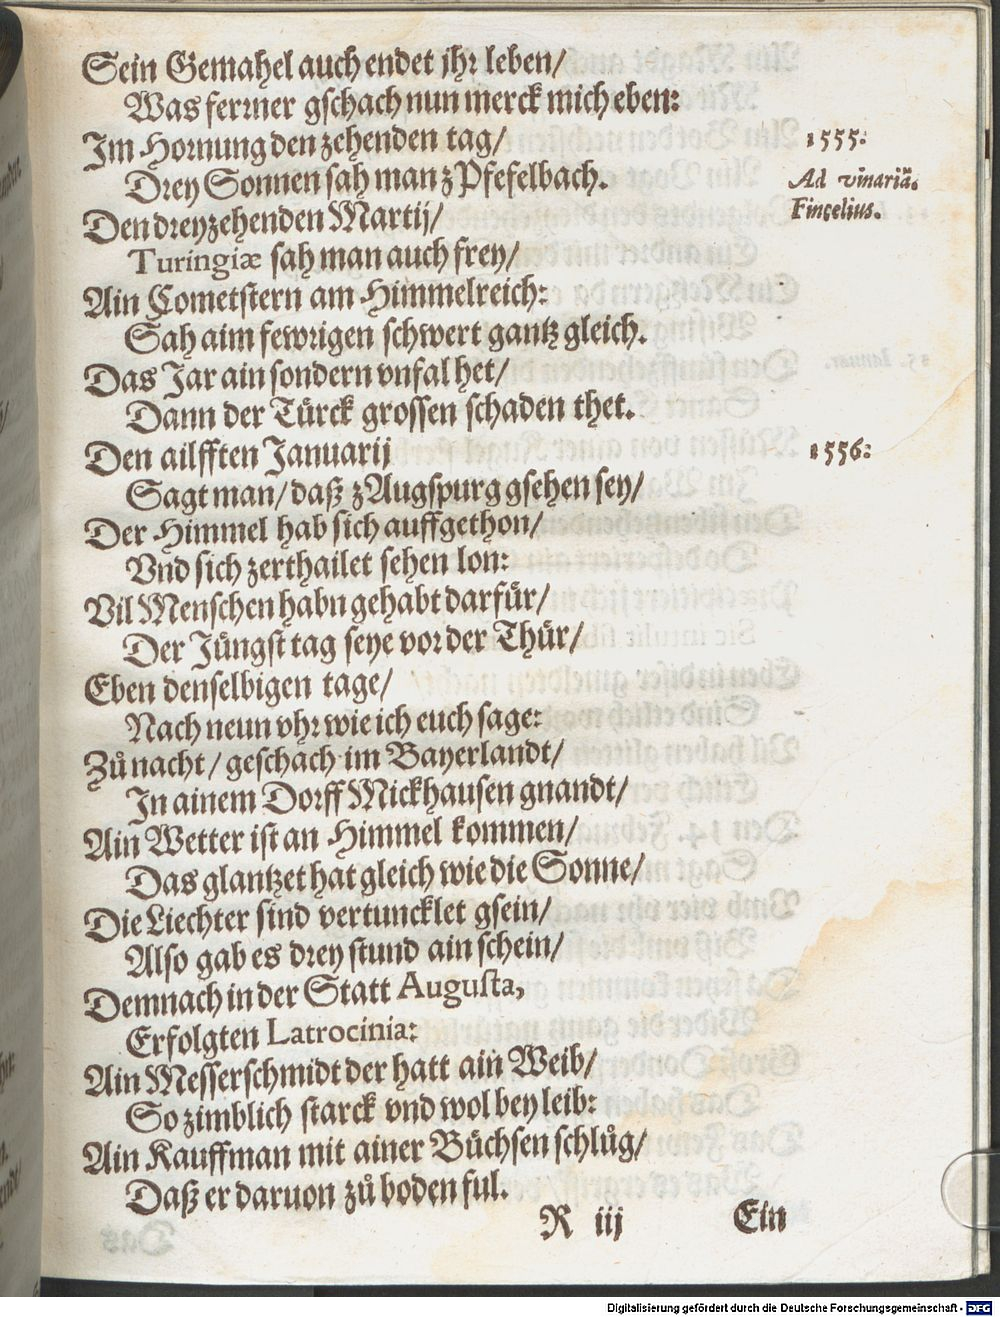 Sein Gemahel auch endet jhr leben/
Was ferrner gschach nun merck mich eben:
Im Hornung den zehenden tag/
1555:
Drey Sonnen sah man z Pfefelbach.
Ad vinariã.
Den dreyzehenden Martij/
Fincelius.
Turingiæ sah man auch frey/
Ain Cometstern am Himmelreich:
Sah aim fewrigen schwert gantz gleich.
Das Jar ain sondern vnfal het/
Dann der Türck grossen schaden thet.
Den ailfften Januarij
1556:
Sagt man/ daß z Augspurg gsehen sey/
Der Himmel hab sich auffgethon/
Vnd sich zerthailet sehen lon:
Vil Menschen habn gehabt darfür/
Der Jüngst tag seye vor der Thür/
Eben denselbigen tage/
Nach neun vhr wie ich euch sage:
Zů nacht/ geschach im Bayerlandt/
In ainem Dorff Mickhausen gnandt/
Ain Wetter ist an Himmel kommen/
Das glantzet hat gleich wie die Sonne/
Die Liechter sind vertuncklet gsein/
Also gab es drey stund ain schein/
Demnach in der Statt Augusta,
Erfolgten Latrocinia:
Ain Messerschmidt der hatt ain Weib/
So zimblich starck vnd wol bey leib:
Ain Kauffman mit ainer Büchsen schlůg/
Daß er daruon zů boden ful.
R iij
Ein
Digitalisierung gefördert durch die Deutsche Forschungsgemeinschaft - DFG